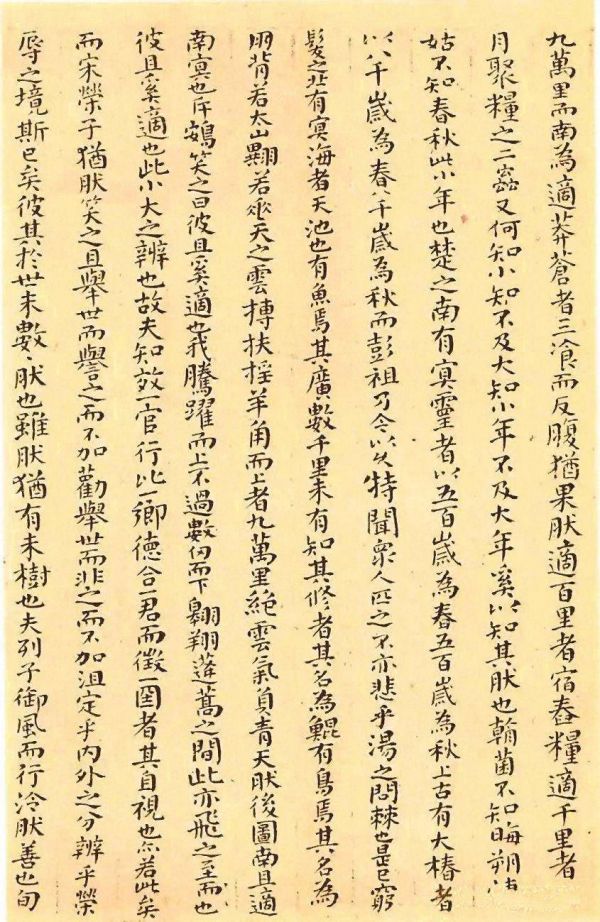 九萬里而南為適莽蒼者三飡而反腹猶果肰適百里者宿舂糧適千里者
月聚糧之二蟲又何知小知不及大知小年不及大年奚以知其肰也朝菌不知晦朔
姑不知春秋此小年也楚之南有冥靈者以五百歲為春五百歲為秋上古有大椿者
以八千歲為春八千歲為秋而彭祖乃今以久特聞衆人匹之不亦悲乎湯之問棘也是已窮
髮之北有冥海者天池也有魚焉其廣數千里未有知其修者其名為鯤有鳥焉其名為
朋背若太山翼若垂天之雲摶扶搖羊角而上者九萬里絕雲氣負青天肰後圖南且適
南冥也斥鴳笑之曰彼且奚適也我騰躍而上不過數仞而下翱翔蓬蒿之間此亦飛之至而也
彼且奚適也此小大之辨也故夫知效一官行比一鄉德合一君而徵一國者其自視也亦若此矣
而宋榮子猶肰笑之且舉世而譽之而不加勸舉世而非之而不加沮定乎內外之分辨乎榮
辱之境斯已矣彼其於世未數〻肰也雖肰猶有未樹也夫列子御風而行泠肰善也旬